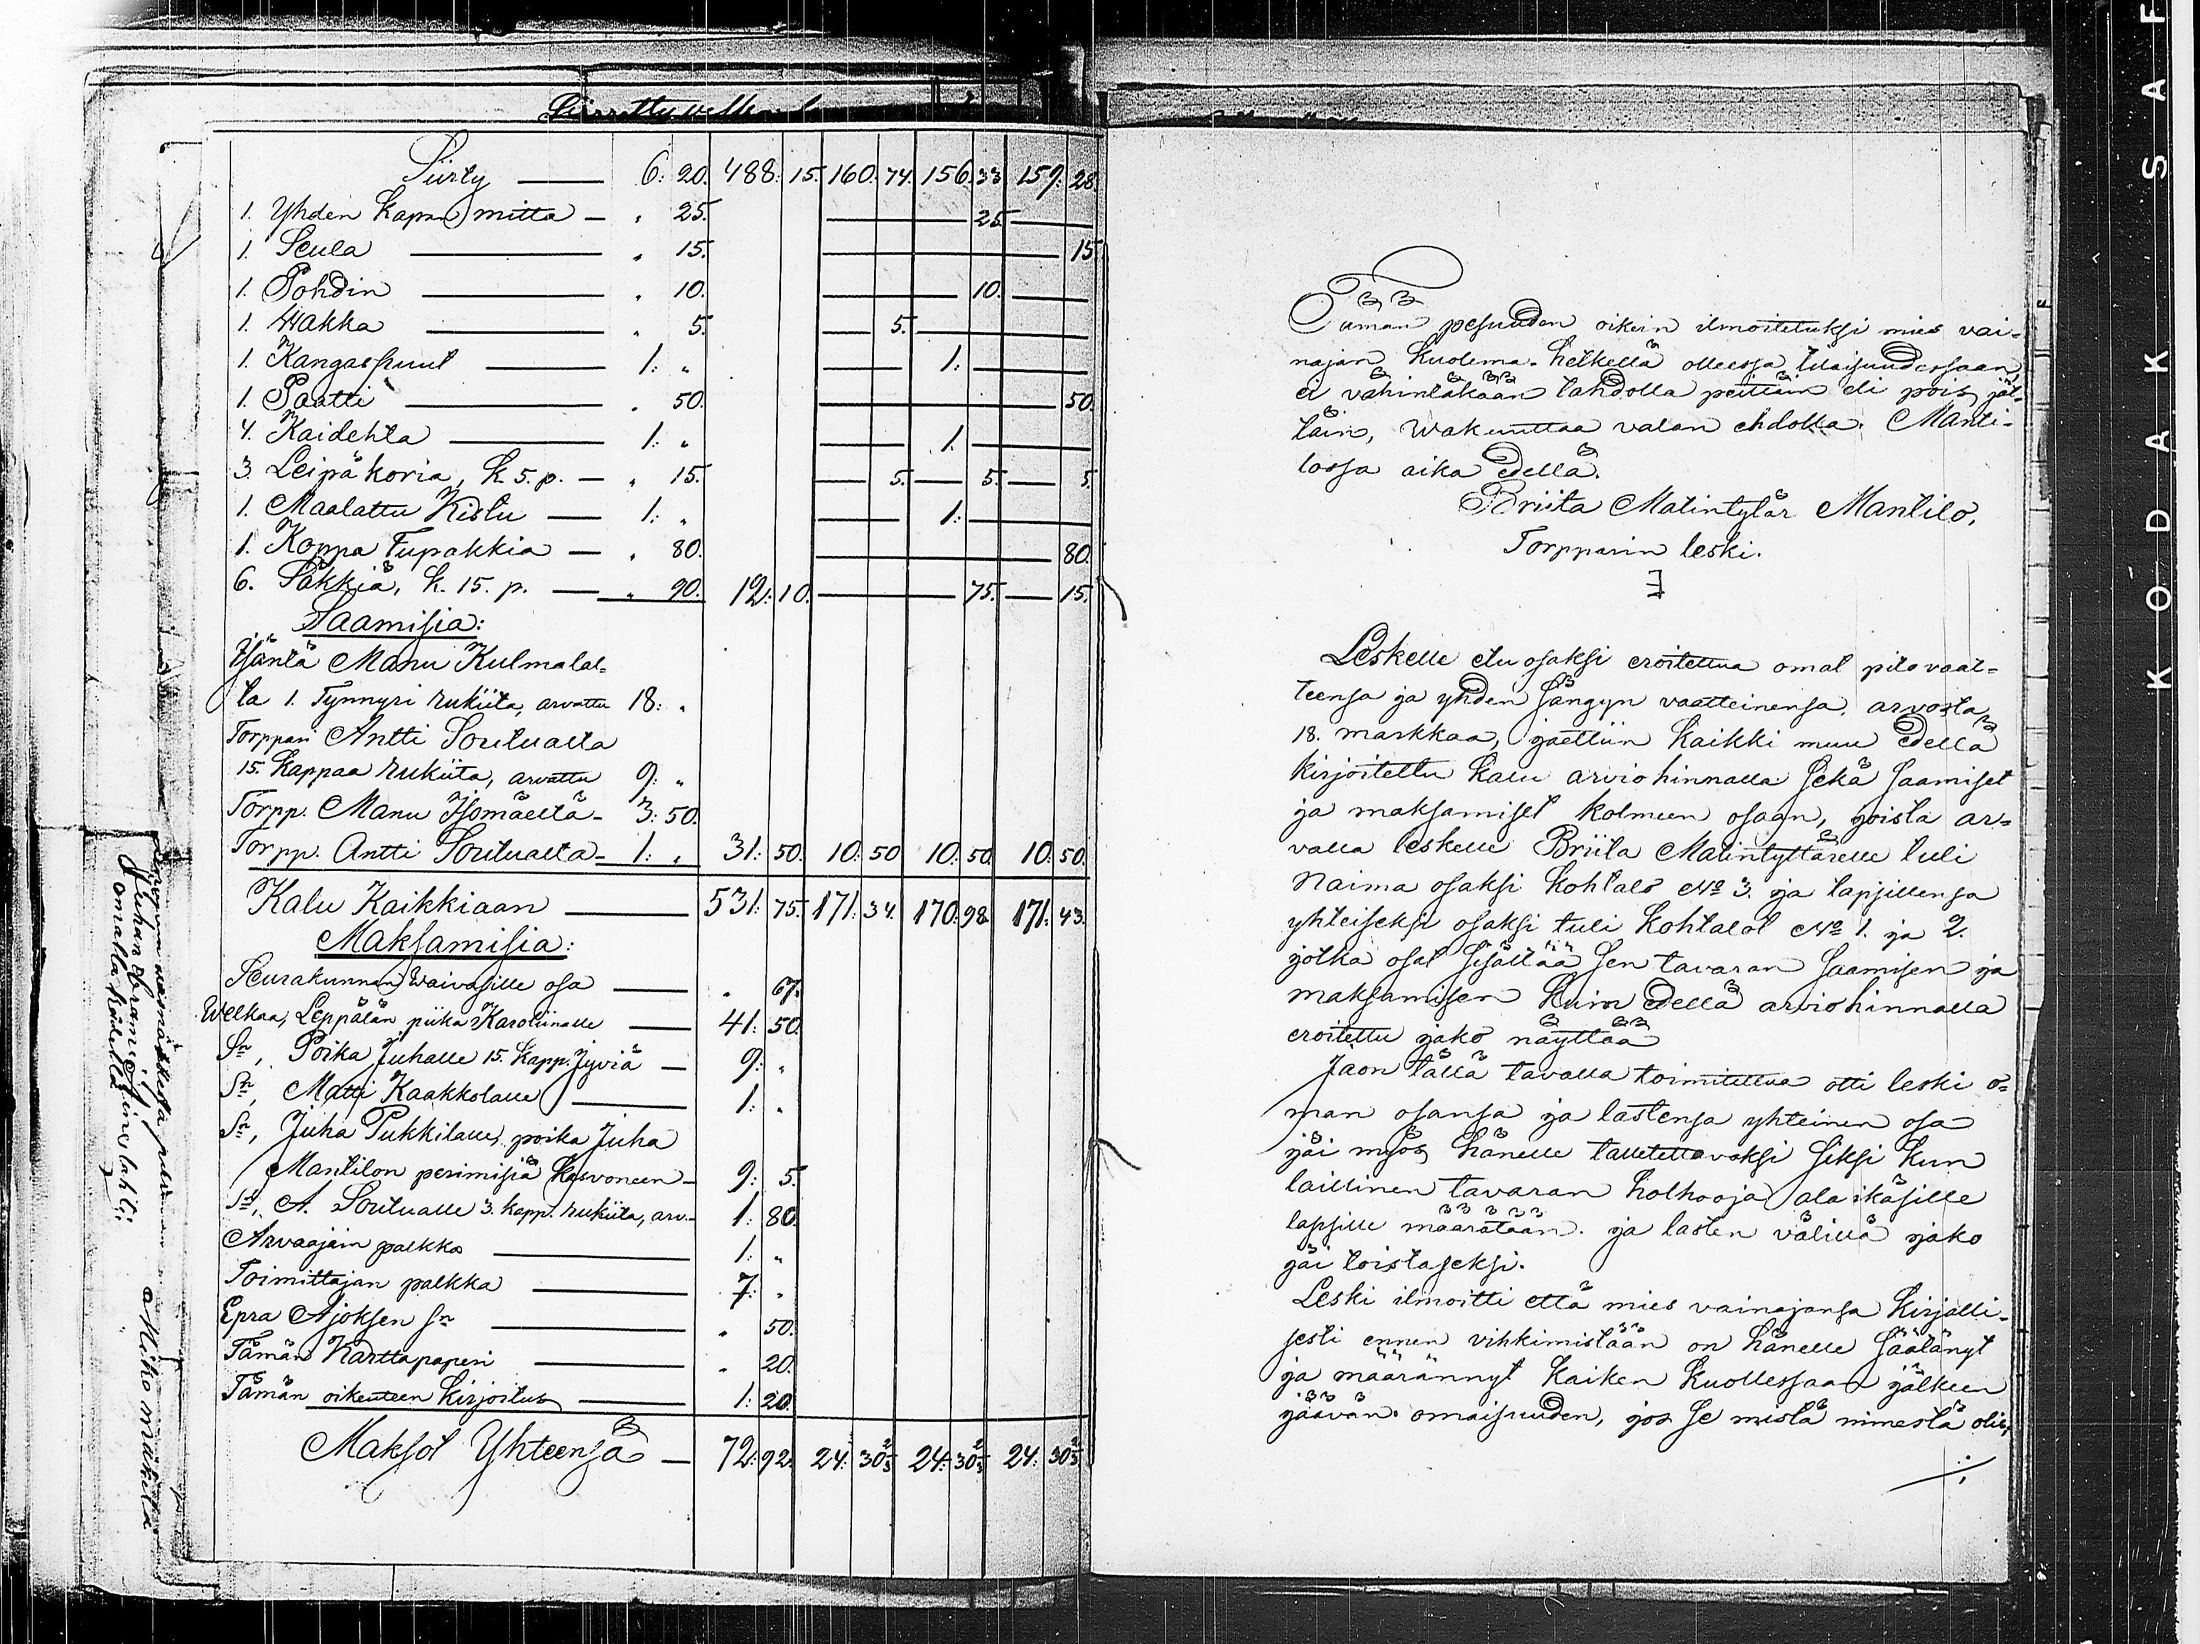 Siirty — 6: 20. 488: 15. 160: 74. 156: 33 159: 28.
1. Yhden Kapan mitta — „ 25. — 25. —
1. Seula — „ 15. — 15.
1. Pohdin — „ 10. — 10. —
1. Wakka — „ 5. — 5. —
1. Kangaspuut — 1: „ — 1: —
1. Paatti — „ 50. — 50.
4. Kaidehta — 1: „ — 1. —
3. Leipä koria, k. 5. p. — „ 15. — 5. — 5. — 5.
1. Maalattu Kistu — 1: „ — 1: —
1. Koppa Tupakkia — „ 80. — 80.
6. Säkkiä, k. 15. p. — „ 90. 12: 10. — 75. — 15.
Saamisia:
Isäntä Manu Kulmalal-
ta 1. Tynnyri rukiita, arvattu 18: „
Torppari Antti Soutualta
15. Kappaa rukiita, arvattu 9: „
Torpp. Manu Isomäeltä - 3: 50.
Torpp. Antti Soutualta - 1: „ 31: 50. 10: 50 10: 50. 10: 50.
Kalu Kaikkiaan — 531: 75. 171: 34. 170: 98. 171: 43.
Maksamisia:
Seurakunnan Waivasille osa — „ 67.
Welkaa, Leppälän piika Karoliinalle — 41: 50.
Sn, Poika Juhalle 15. Kapp. Jyviä — 9: „
Sn, Matti Kaakkolalle — 1: „
Sn, Juha Pukkilalle, poika Juha
Mantilon perimisiä Kasvoneen - 9: 5.
Sn, A. Soutualle 3. kapp. rukiita, arv. - 1: 80.
Arvaajain palkka — 1: „
Toimittajan palkka — 7: „
Epra Ajoksen sn — „ 50.
Tämän Karttapaperi — „ 20.
Tämän oikeuteen Kirjoitus — 1: 20.
Maksot Yhteensä — 72: 92. 24: 30 2/3 24: 30 2/3 24: 30 2/3
omalla kädellä
Tämän pesuuden oikein ilmoitetuksi mies vai-
najan Kuolema-hetkellä olleessa tilaisuudessaan,
ei vähintäkään tahdolla peittäin eli pois jät-
täin, Wakuuttaa valan ehdolla. Manti-
lossa aika edellä.
Briita Matintytär Mantilo,
Torpparin leski.
Leskelle etu osaksi eroitettua omat pito vaat-
teensa ja yhden Sängyn vaatteinensa, arvosta
18. markkaa, jaettiin kaikki muu edellä
kirjoitettu kalu arvio hinnalla sekä saamiset
ja maksamiset kolmeen osaan, joista ar-
valla leskelle Briita Matintyttärelle tuli
Naima osaksi kohtalo No 3. ja lapsillensa
yhteiseksi osaksi tuli kohtalot No 1. ja 2.
jotka osat sisältää sen tavaran saamisen ja
maksamisen kuin edellä arviohinnalla
eroitettu jako näyttää
Jaon tällä tavalla toimitettua otti leski o-
man osansa ja lastensa yhteinen osa
jäi myös hänelle talletettavaksi siksi kun
laillinen tavaran holhooja ala ikäsille
lapsille määrätään. ja lasten välillä jako
jäi toistaseksi.
Leski ilmoitti että mies vainajansa kirjalli-
sesti ennen vihkimistään on hänelle säätänyt
ja määrännyt kaiken kuollessaan jälkeen
jäävän omaisuuden, jos se mistä nimestä olis,